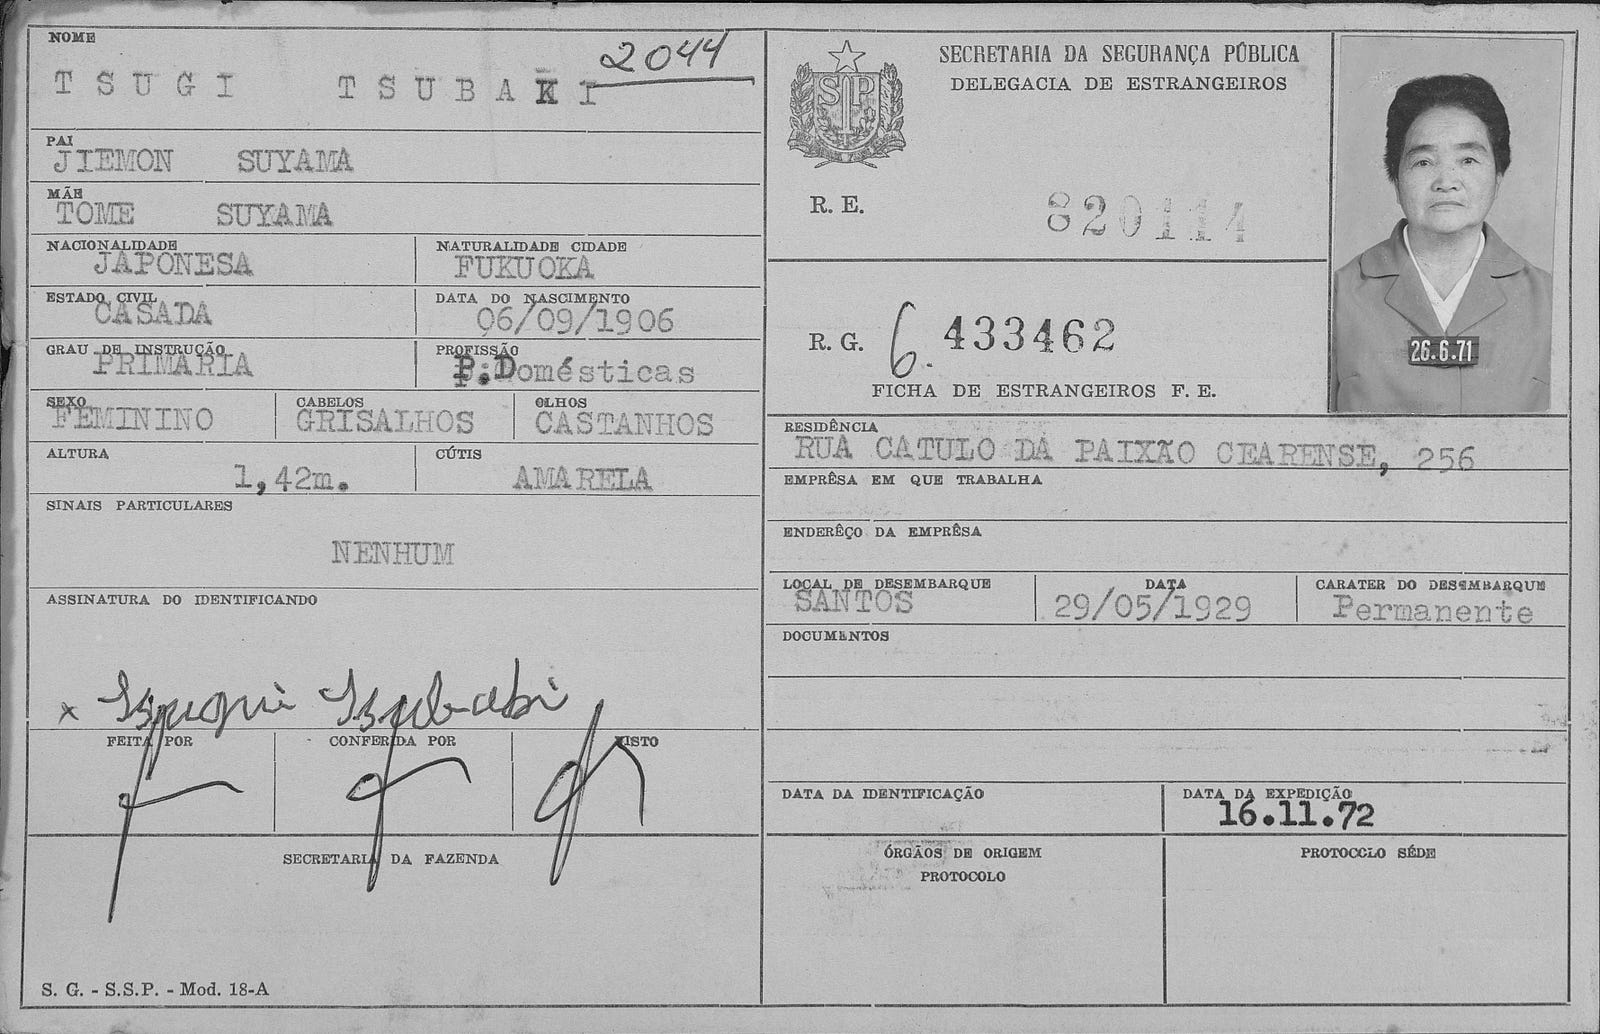 NOME
2044
TSUGI TSUBAKI
PAI
JIEMON SUYAMA
MÃE
TOME SUYAMA
NACIONALIDADE
JAPONESA
NATURALIDADE CIDADE
FUKUOKA
ESTADO CIVIL
CASADA
DATA DO NASCIMENTO
06/09/1906
GRAU DE INSTRUÇÃO
PRIMARIA
PROFISSÃO
P.Domésticas
SEXO
FEMININO
CABELOS
GRISALHOS
OLHOS
CASTANHOS
ALTURA
1,42m.
CÚTIS
AMARELA
SINAIS PARTICULARES
NENHUM
ASSINATURA DO IDENTIFICANDO
x Tsugui Tsubaki
FEITA POR
CONFERIDA POR
VISTO
SECRETARIA DA FAZENDA
S. G. - S.S.P. - Mod. 18-A
SP
SECRETARIA DA SEGURANÇA PÚBLICA
DELEGACIA DE ESTRANGEIROS
R. E.
820114
R. G. 6.433462
FICHA DE ESTRANGEIROS F. E.
26.6.71
RESIDÊNCIA
RUA CATULO DA PAIXÃO CEARENSE, 256
EMPRÊSA EM QUE TRABALHA
ENDERÊÇO DA EMPRÊSA
LOCAL DE DESEMBARQUE
SANTOS
DATA
29/05/1929
CARATER DO DESEMBARQUE
Permanente
DOCUMENTOS
DATA DA IDENTIFICAÇÃO
DATA DA EXPEDIÇÃO
16.11.72
ÓRGÃOS DE ORIGEM
PROTOCOLO
PROTOCOLO SÉDE